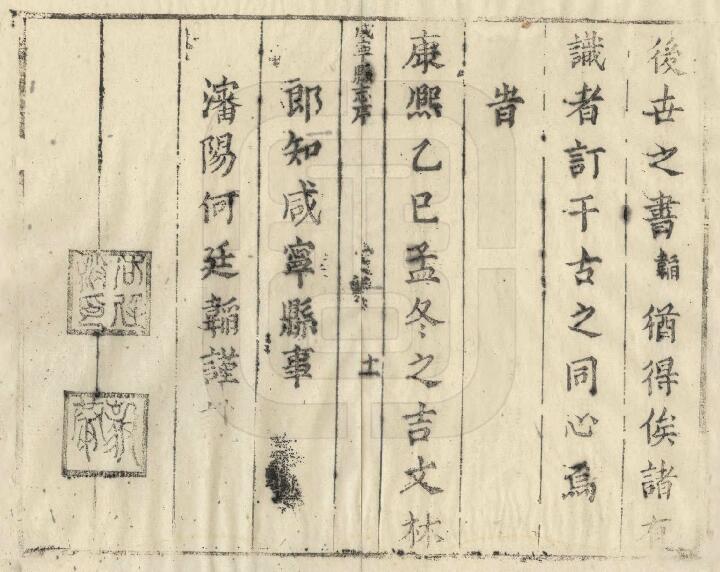 後世之書韜猶得俟諸有
識者訂千古之同心焉
旹
康熙乙巳孟冬之吉文林
咸寧縣志序
十一
郎知咸寧縣事
瀋陽何廷韜謹